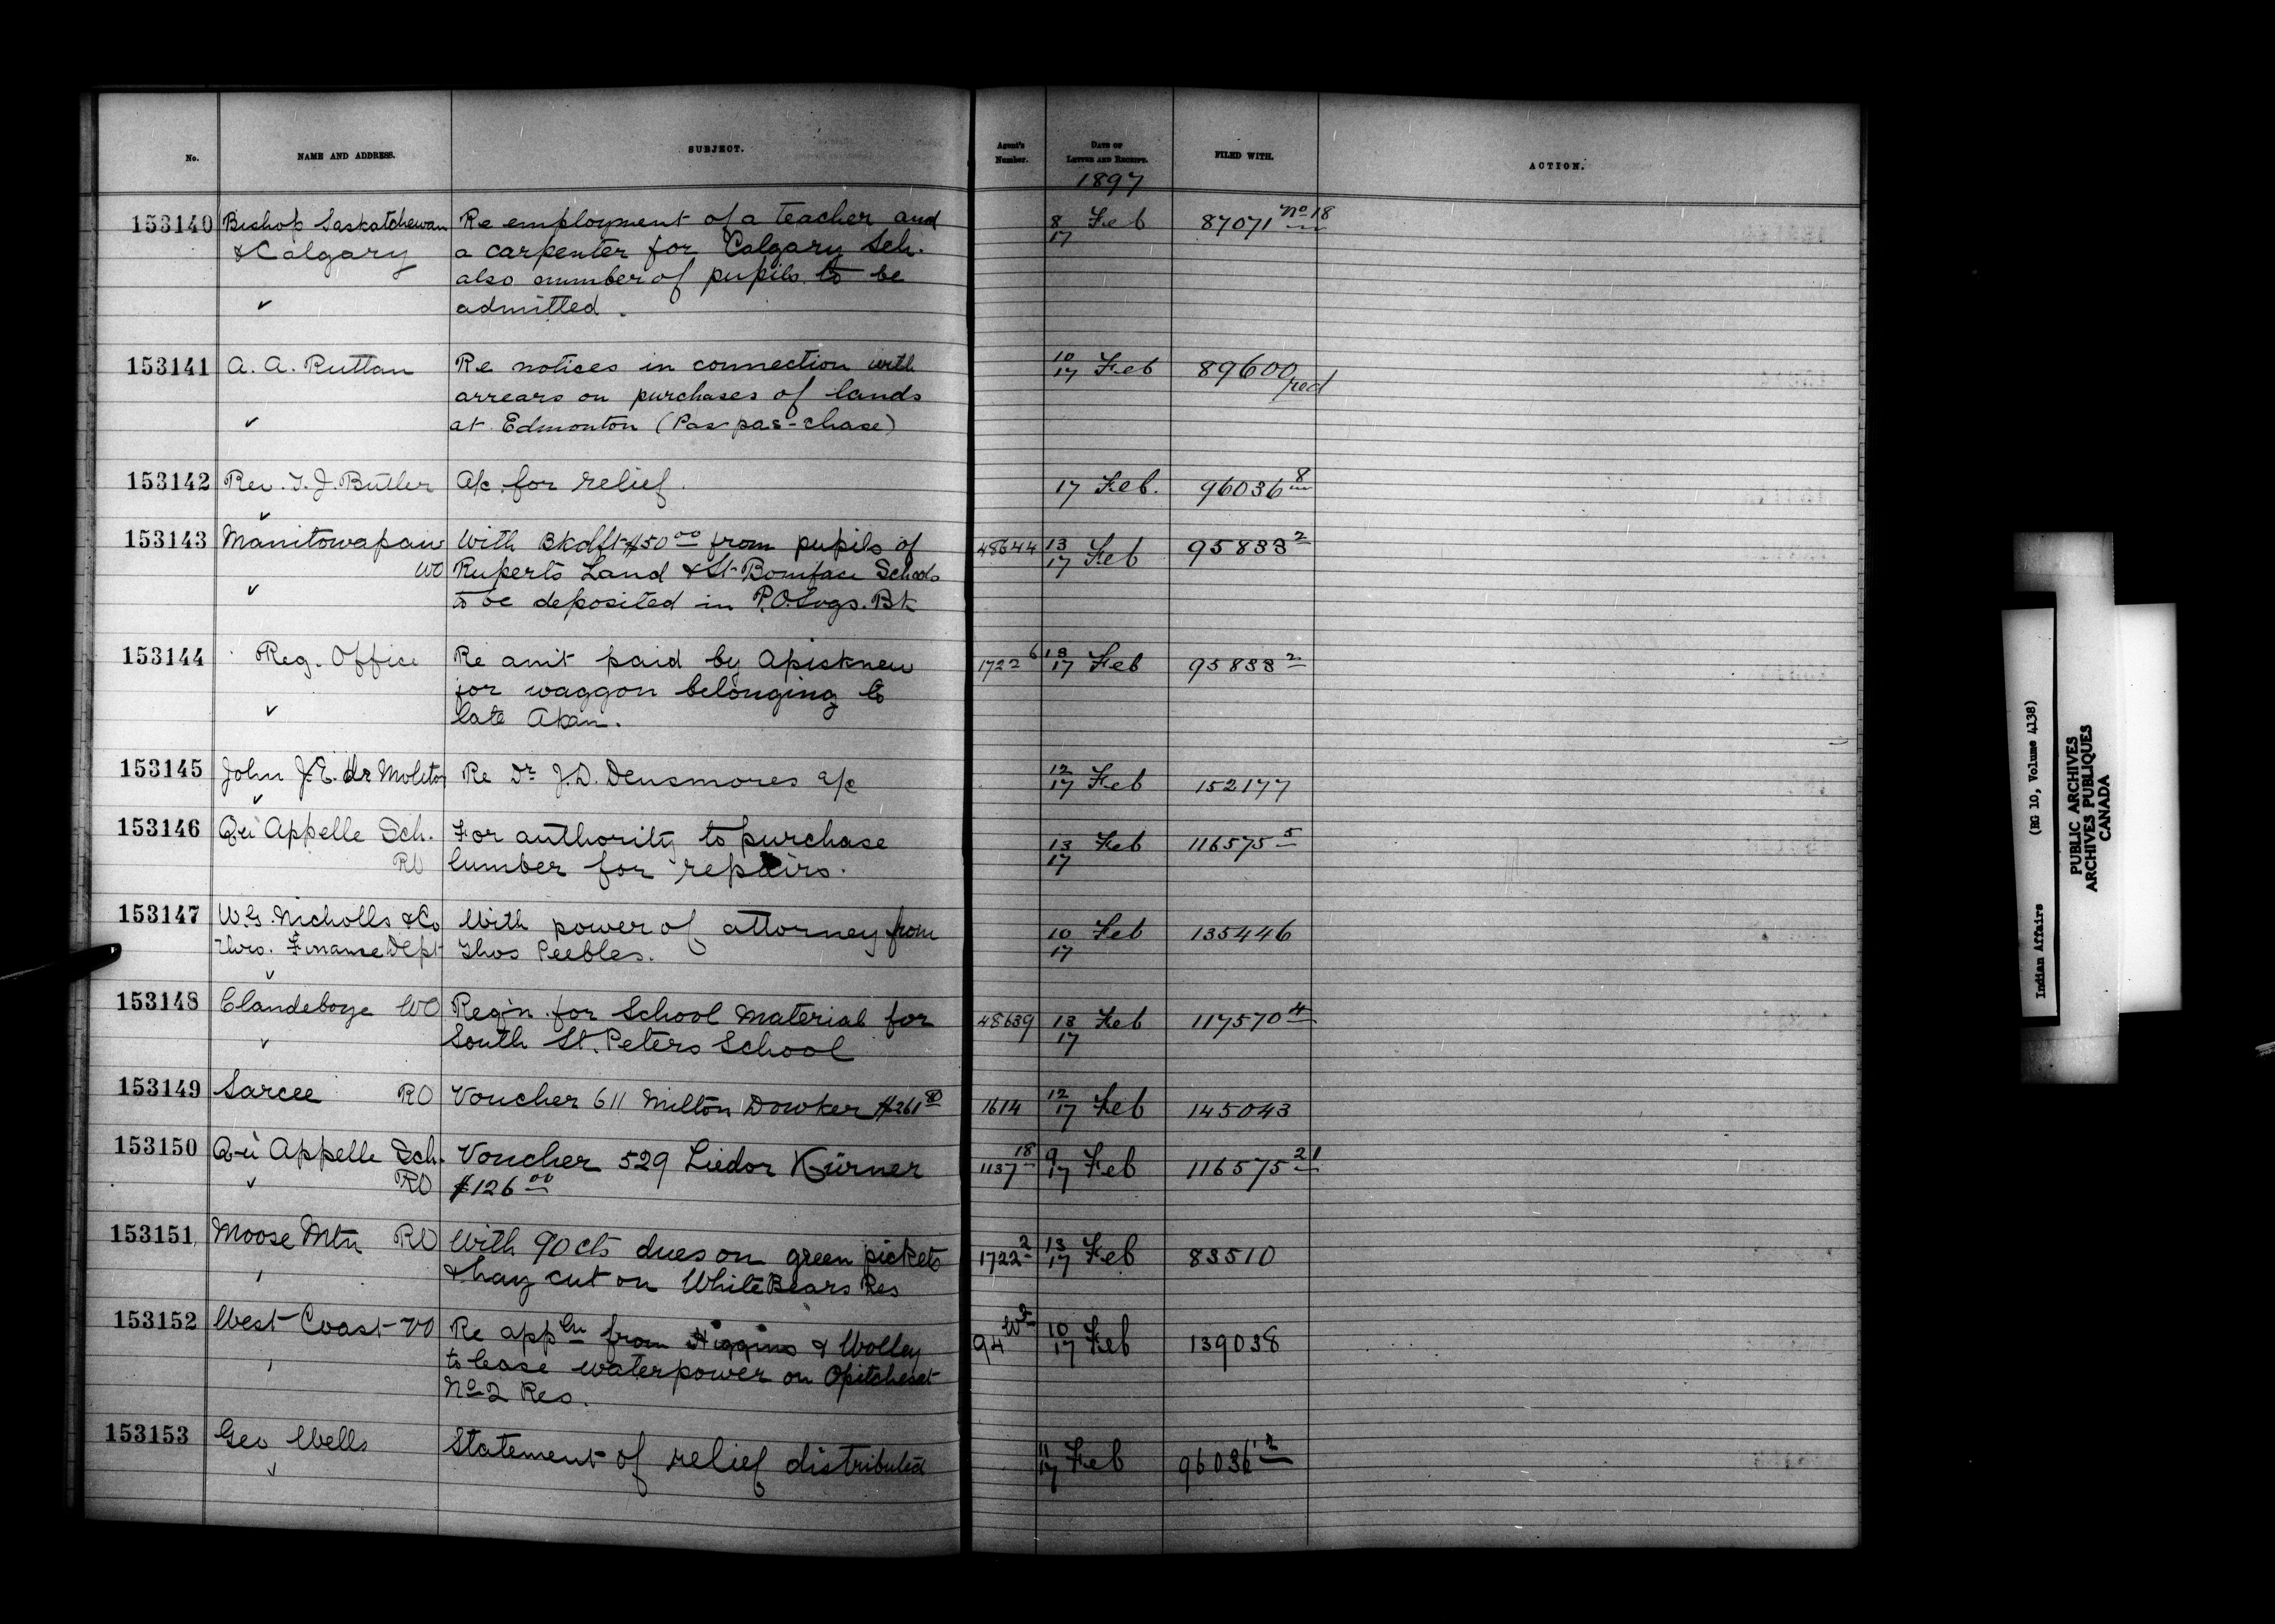 No. NAME AND ADDRESS. SUBJECT. Agent's Number. DATE OF LETTER AND RECEIPT. FILED WITH. ACTION.
1897
153140 Bishop Saskatchewan Re employment of a teacher and 8 Feb 87071 No 18
& Calgary a carpenter for Calgary Sch. 17
also number of pupils to be
admitted.
153141 A. A. Ruttan Re notices in connection with 10/17 Feb 89600 red
arrears on purchases of lands
at Edmonton (Pas-pas-chase)
153142 Rev. T. J. Butler A/c for relief. 17 Feb. 96036 8
153143 Manitowapaw With Bkdft $50 00 from pupils of 48644 13/17 Feb 95833 2
WO Ruperts Land & St Boniface Schools
to be deposited in P.O. Svgs. Bk
153144 Reg. Office Re amt paid by Apisknew 1722 6 13/17 Feb 95833 2
for waggon belonging to
late Akan.
153145 John J. E. Re Dr J.D. Densmores a/c 12/17 Feb 152177
153146 Qu'Appelle Sch. For authority to purchase 13 Feb 116575 5
RO lumber for repairs. 17
153147 W.G. Nicholls & Co With power of attorney from 10 Feb 135446
Thro. Finance Dept Thos Peebles. 17
153148 Clandeboye WO Reqn. for School Material for 48639 13 Feb 117570 4
South St. Peters School 17
153149 Sarcee RO Voucher 611 Milton Dowker $261 80 1614 12/17 Feb 145043
153150 Qu'Appelle Sch. Voucher 529 Liedor Kürner 1137 18 9/17 Feb 116575 21
RO $126 00
153151 Moose Mtn RO With 90 cts dues on green pickets 1722 2 13/17 Feb 83510
& hay cut on White Bears Res
153152 West Coast VO Re appln from Higgins & Wolley 94 W 10/17 Feb 139038
to lease waterpower on Opitchesat
No 2 Res.
153153 Geo Wells Statement of relief distributed 11/17 Feb 96036 12
Indian Affairs (RG 10, Volume 4138)
PUBLIC ARCHIVES
ARCHIVES PUBLIQUES
CANADA